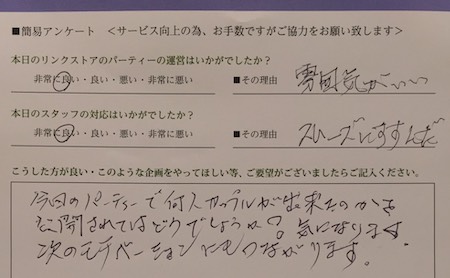 ■簡易アンケート ＜サービス向上の為、お手数ですがご協力をお願い致します＞
本日のリンクストアのパーティーの運営はいかがでしたか？
非常に良い・良い・悪い・非常に悪い ■その理由 雰囲気がいい
本日のスタッフの対応はいかがでしたか？
非常に良い・良い・悪い・非常に悪い ■その理由 スムーズにすすんだ
こうした方が良い・このような企画をやってほしい等、ご要望がございましたらご記入ください。
今回のパーティーで何人カップルが出来たのかを
公開されてはどうでしょうか？。気になります
次のモチベーションにもつながります。